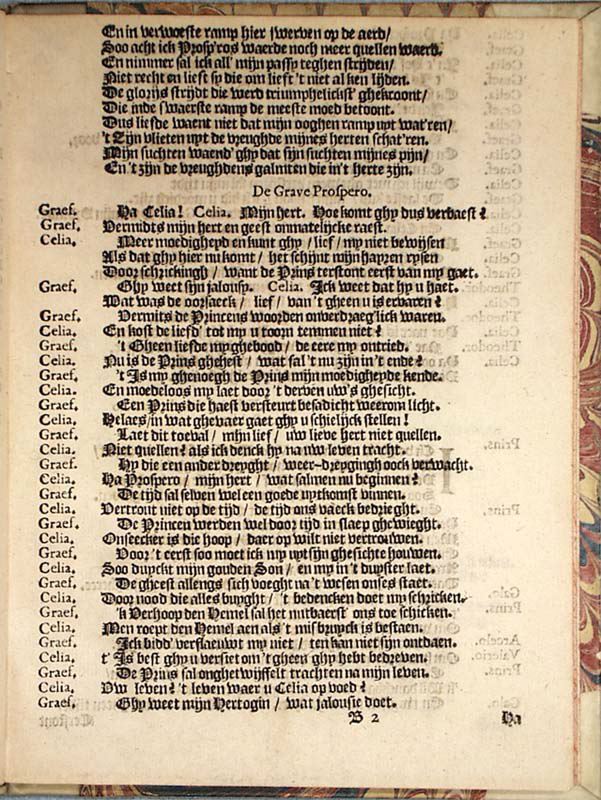 En in verwoeste ramp hier swerven op de aerd/
Soo acht ick Prosp'ros waerde noch meer quellen waerd.
En nimmer sal ick all' mijn passy teghen strijden/
Niet recht en lieft sy die om lieft 't niet al ken lijden.
De glorijs strijdt die werd triumphelickst' ghekroont/
Die inde swaerste ramp de meeste moed betoont.
Dus liefde waent niet dat mijn ooghen ramp uyt wat'ren/
't Zijn vlieten uyt de vreughde mijnes herten schat'ren.
Mijn suchten waend' ghy dat sijn suchten mijnes pijn/
En 't zijn de vreughdens galmten die in 't herte zijn.
De Grave Prospero.
Graef. Ha Celia! Celia. Mijn hert. Hoe komt ghy dus verbaest?
Graef. Vermidts mijn hert en geest onmatelijcke raest.
Celia. Meer moedigheyd en kunt ghy/ lief/ my niet bewijsen
Als dat ghy hier nu komt/ het schijnt mijn hayren rysen
Door schrickingh/ want de Prins terstont eerst van my gaet.
Graef. Ghy weet sijn jalousy. Celia. Ick weet dat hy u haet.
Wat was de oorsaeck/ lief/ van 't gheen u is ervaren?
Graef. Vermits de Princens woorden onverdraeg'lick waren.
Celia. En kost de liefd' tot my u toorn temmen niet?
Graef. 't Gheen liefde my ghebood/ de eere my ontried.
Celia. Nu is de Prins ghehest/ wat sal 't nu zijn in 't ende?
Graef. 't Is my ghenoegh de Prins mijn moedigheyde kende.
Celia. En moedeloos my laet door 't derven uw's ghesicht.
Graef. Een Prins die haest versteurt besadicht weerom licht.
Celia. Helaes/ in wat ghevaer gaet ghy u schielijck stellen!
Graef. Laet dit toeval/ mijn lief/ uw lieve hert niet quellen.
Celia. Niet quellen? als ick denck hy na uw leven tracht.
Graef. Hy die een ander dreyght/ weer-dreyging hoock verwacht.
Celia. Ha Prospero/ mijn hert/ wat salmen nu beginnen?
Graef. De tijd sal selven wel een goede uytkomst vinnen.
Celia. Vertrout niet op de tijd/ de tijd ons vaeck bedrieght.
Graef. De Princen werden wel door tijd in slaep ghewieght.
Celia. Onseecker is die hoop/ daer op wilt niet vertrouwen.
Graef. Voor 't eerst soo moet ick my uyt sijn ghesichte houwen.
Celia. Soo duyckt mijn gouden Son/ en my in 't duyster laet.
Graef. De gheest allengs sich voeght na 't wesen onses staet.
Celia. Door nood die alles buyght/ 't bedencken doet my schricken.
Graef. 'k Verhoop den Hemel sal het nutbaerst' ons toe schicken.
Celia. Men roept den Hemel aen als 't misbruyck is bestaen.
Graef. Ick bidd' verflaeuwt my niet/ ten kan niet sijn ontdaen.
Celia. t' Is best ghy u versiet om 't gheen ghy hebt bedreven.
Graef. De Prins sal onghetwijffelt trachten na mijn leven.
Celia. Uw leven? 't leven waer u Celia op voed?
Graef. Ghy weet mijn Hertogin/ wat jalousie doet.
B 2 Ha